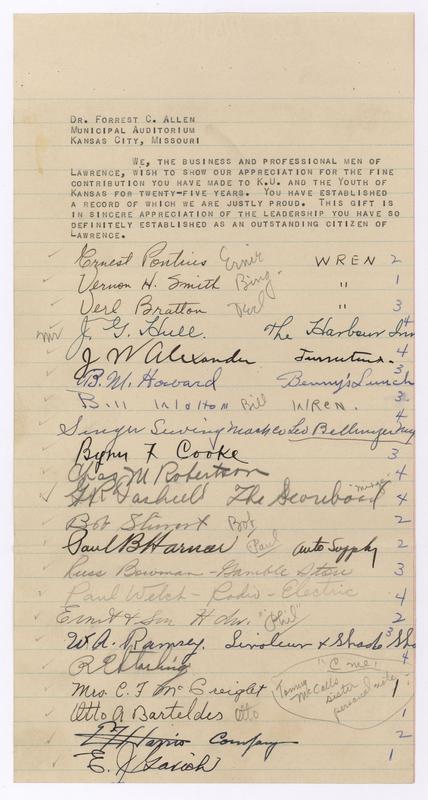 DR. FORREST C. ALLEN
MUNICIPAL AUDITORIUM
KANSAS CITY, MISSOURI
WE, THE BUSINESS AND PROFESSIONAL MEN OF
LAWRENCE, WISH TO SHOW OUR APPRECIATION FOR THE FINE
CONTRIBUTION YOU HAVE MADE TO K.U. AND THE YOUTH OF
KANSAS FOR TWENTY-FIVE YEARS. YOU HAVE ESTABLISHED
A RECORD OF WHICH WE ARE JUSTLY PROUD. THIS GIFT IS
IN SINCERE APPRECIATION OF THE LEADERSHIP YOU HAVE SO
DEFINITELY ESTABLISHED AS AN OUTSTANDING CITIZEN OF
LAWRENCE.
Ernest Pontius Ernie WREN 2
Vernon H. Smith Bing " 1
Verl Bratton Verl " 3
mr J. G. Hull The Harbour Inn 4
J W Alexander 4
B. M. Howard Benny's Lunch 3
Bill Bill WREN. 3
Singer Sewing Mach Co Leo 4
F. Cooke 3
Chas M Robertson 4
The Scoreboard 4
Bob Bob 2
Paul B Harner Paul Auto Supply 2
Russ Bowman - Gamble Store 3
Paul Welch - Radio - Electric 4
Ernst & Son Hdw. "Phil" 2
W. A. Ramsey. Linoleum & Shade 3
R E 4
Mrs. C. F. McCreight Tommy McCalls sister personal note 1
Otto A Barteldes Otto 1
Company 2
E. J. 1